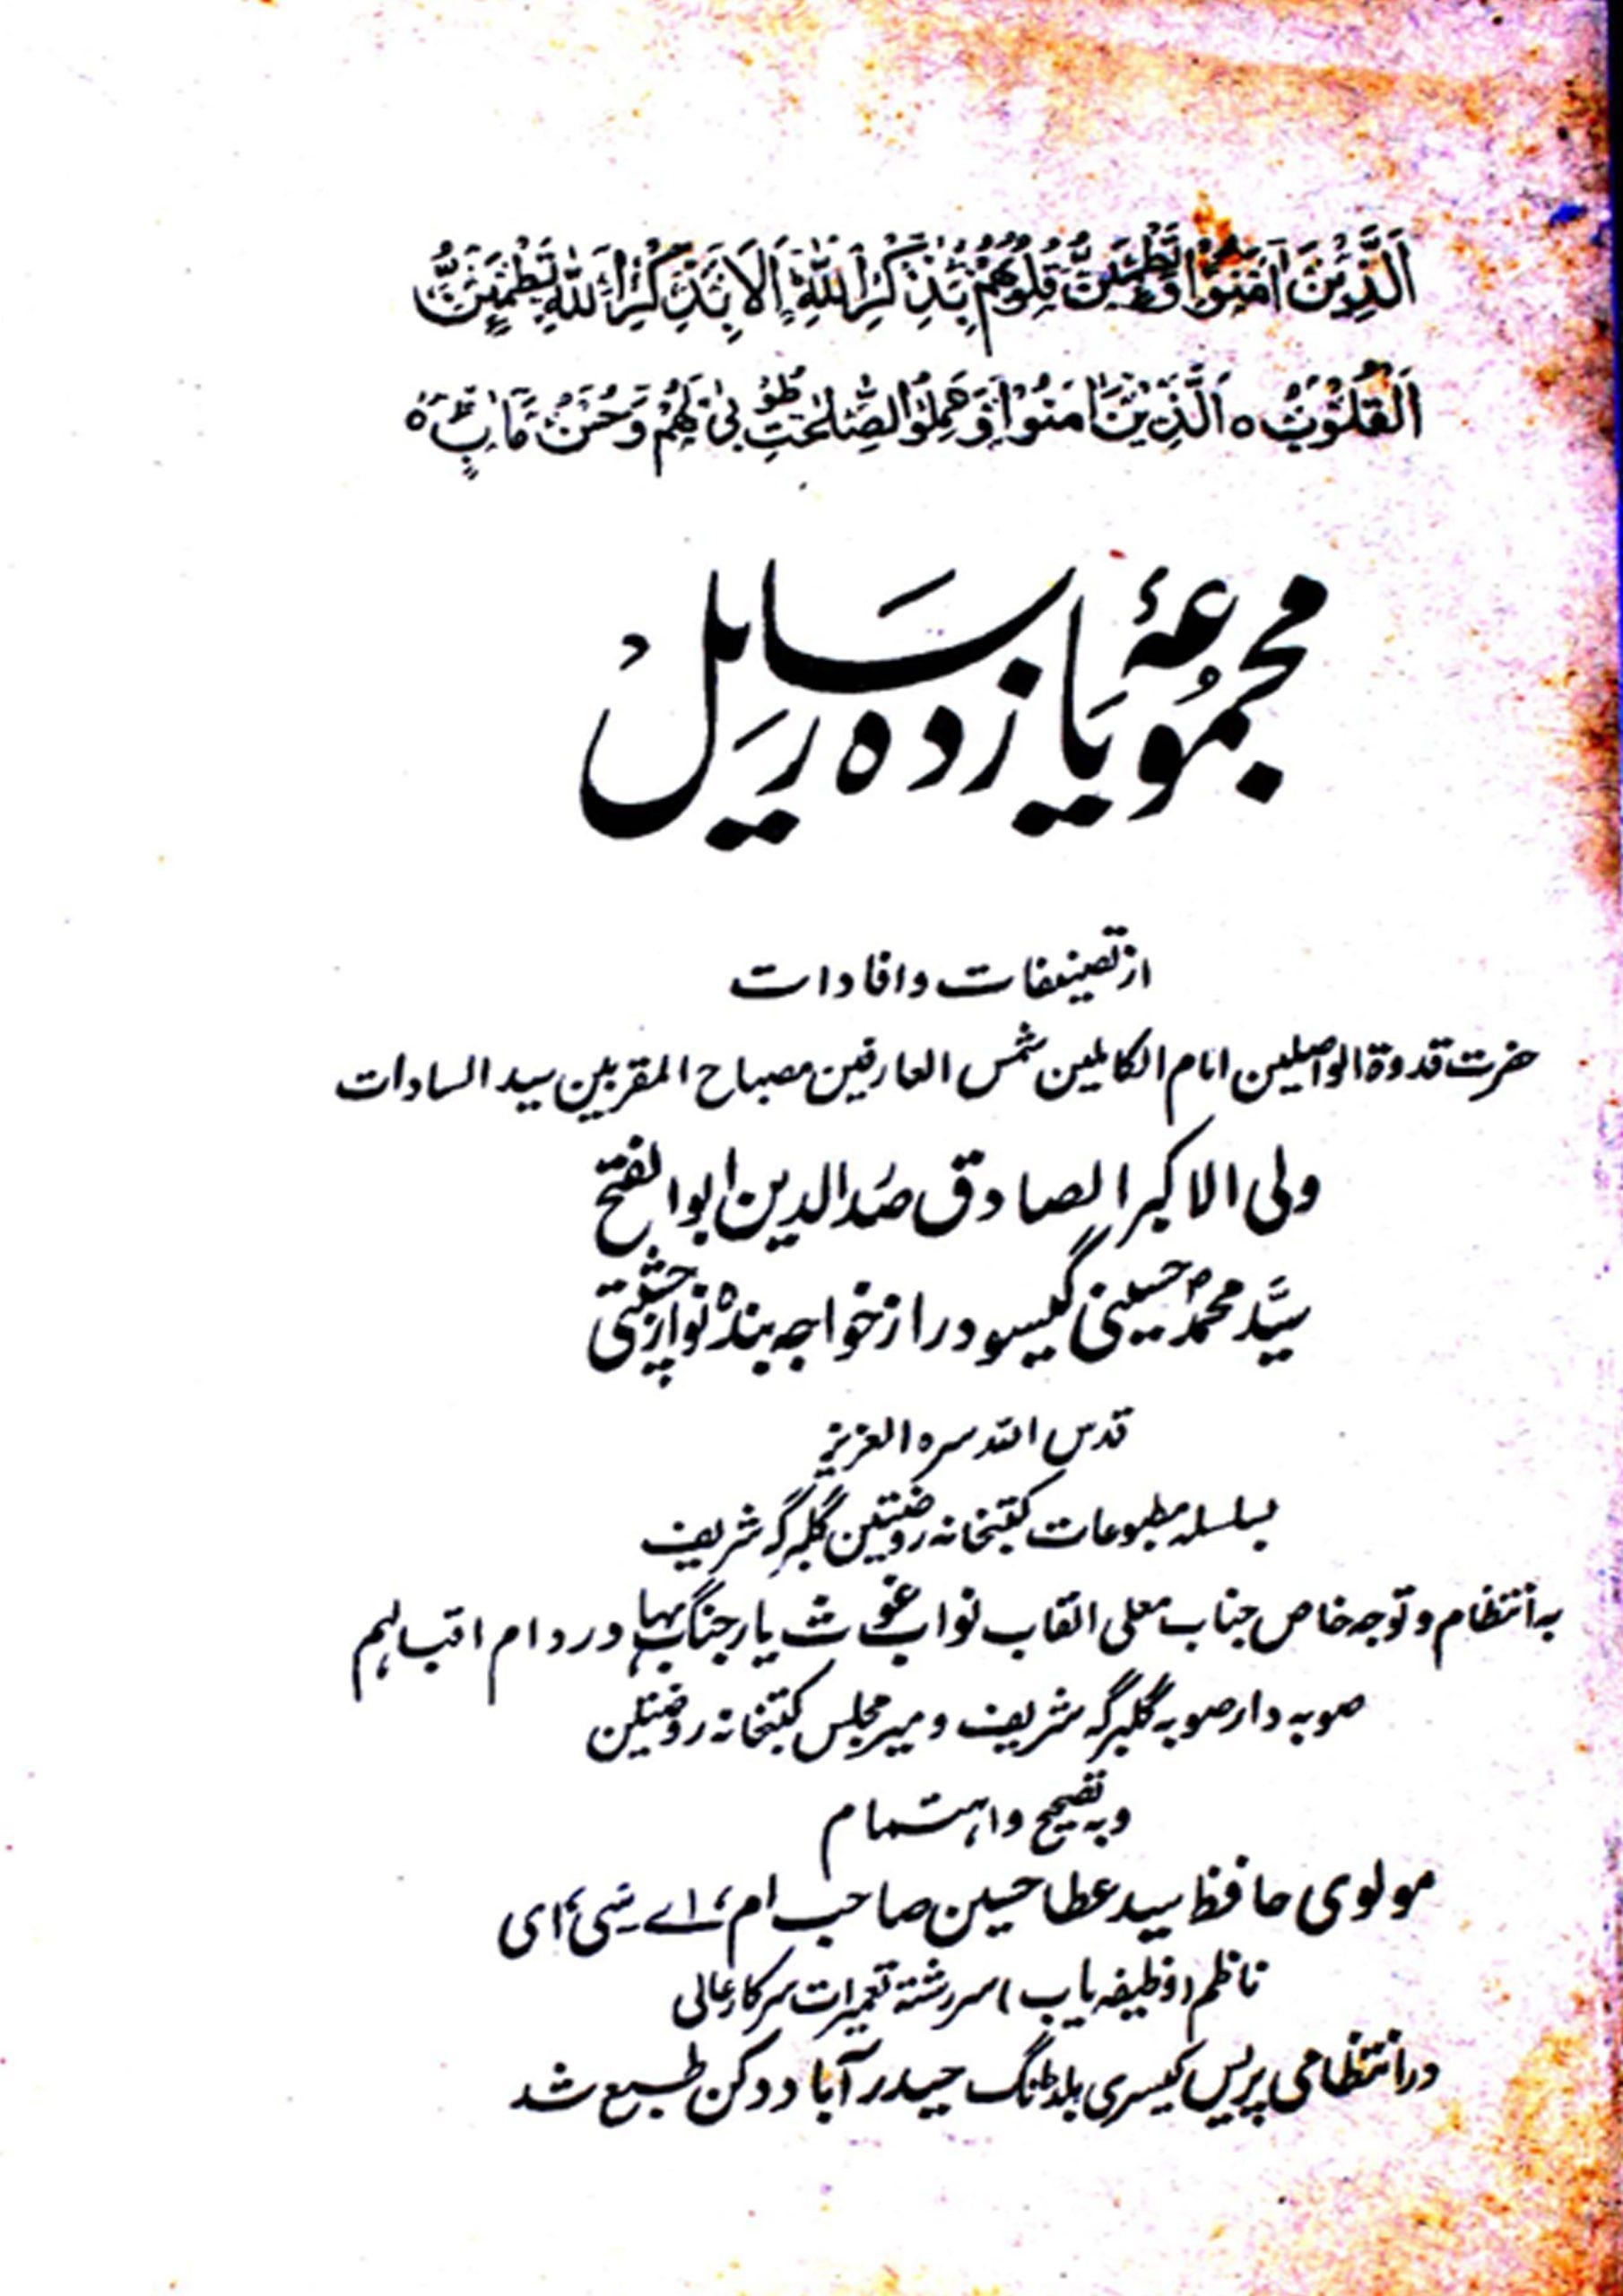 اَلَّذِیْنَ اٰمَنُوْا وَتَطْمَئِنُّ قُلُوْبُهُمْ بِذِكْرِ اللّٰهِ اَلَا بِذِكْرِ اللّٰهِ تَطْمَئِنُّ
الْقُلُوْبُ ه اَلَّذِیْنَ اٰمَنُوْا وَعَمِلُوا الصّٰلِحٰتِ طُوْبٰی لَهُمْ وَحُسْنُ مَاٰبٍ ه
مجموعۂ یازده رسایل
از تصنیفات و افادات
حضرت قدوة الواصلین امام الکاملین شمس العارفین مصباح المقربین سید السادات
ولی الاکبر الصادق صدرالدین ابوالفتح
سیّد محمد حسینی گیسو دراز خواجه بنده نواز چشتی
قدس الله سره العزیز
بسلسله مطبوعات کتبخانه روضتین گلبرگه شریف
به انتظام و توجه خاص جناب معلی القاب نواب غوث یار جنگ بهادر دام اقبالهم
صوبه دار صوبه گلبرگه شریف و میر مجلس کتبخانه روضتین
و به تصحیح و اهتمام
مولوی حافظ سید عطا حسین صاحب ام، اے سی، ای
ناظم (وظیفه یاب) سررشته تعمیرات سرکار عالی
در انتظامی پریس کیسری بلڈنگ حیدرآباد دکن طبع شد